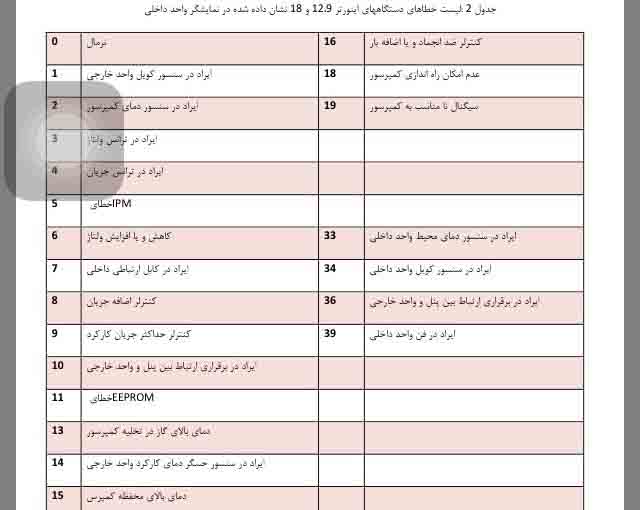 جدول 2 :لیست خطاهای دستگاههای اینورتر 12.9 و 18 نشان داده شده در نمایشگر واحد داخلی
0 نرمال 16 کنترلر ضد انجماد و یا اضافه بار
1 ایراد در سنسور کویل واحد خارجی 18 عدم امکان راه اندازی کمپرسور
2 ایراد در سنسور دمای کمپرسور 19 سیگنال نا مناسب به کمپرسور
3 ایراد در ترانس ولتاژ
4 ایراد در ترانس جریان
5 خطایIPM
6 کاهش و یا افزایش ولتاژ 33 ایراد در سنسور دمای محیط واحد داخلی
7 ایراد در کابل ارتباطی داخلی 34 ایراد در سنسور کویل واحد داخلی
8 کنترلر اضافه جریان 36 ایراد در برقراری ارتباط بین پنل و واحد خارجی
9 کنترلر حداکثر جریان کارکرد 39 ایراد در فن واحد داخلی
10 ایراد در برقراری ارتباط بین پنل و واحد خارجی
11 خطایEEPROM
13 دمای بالای گاز در تخلیه کمپرسور
14 ایراد در سنسور حسگر دمای کارکرد واحد خارجی
15 دمای بالای محفظه کمپرس